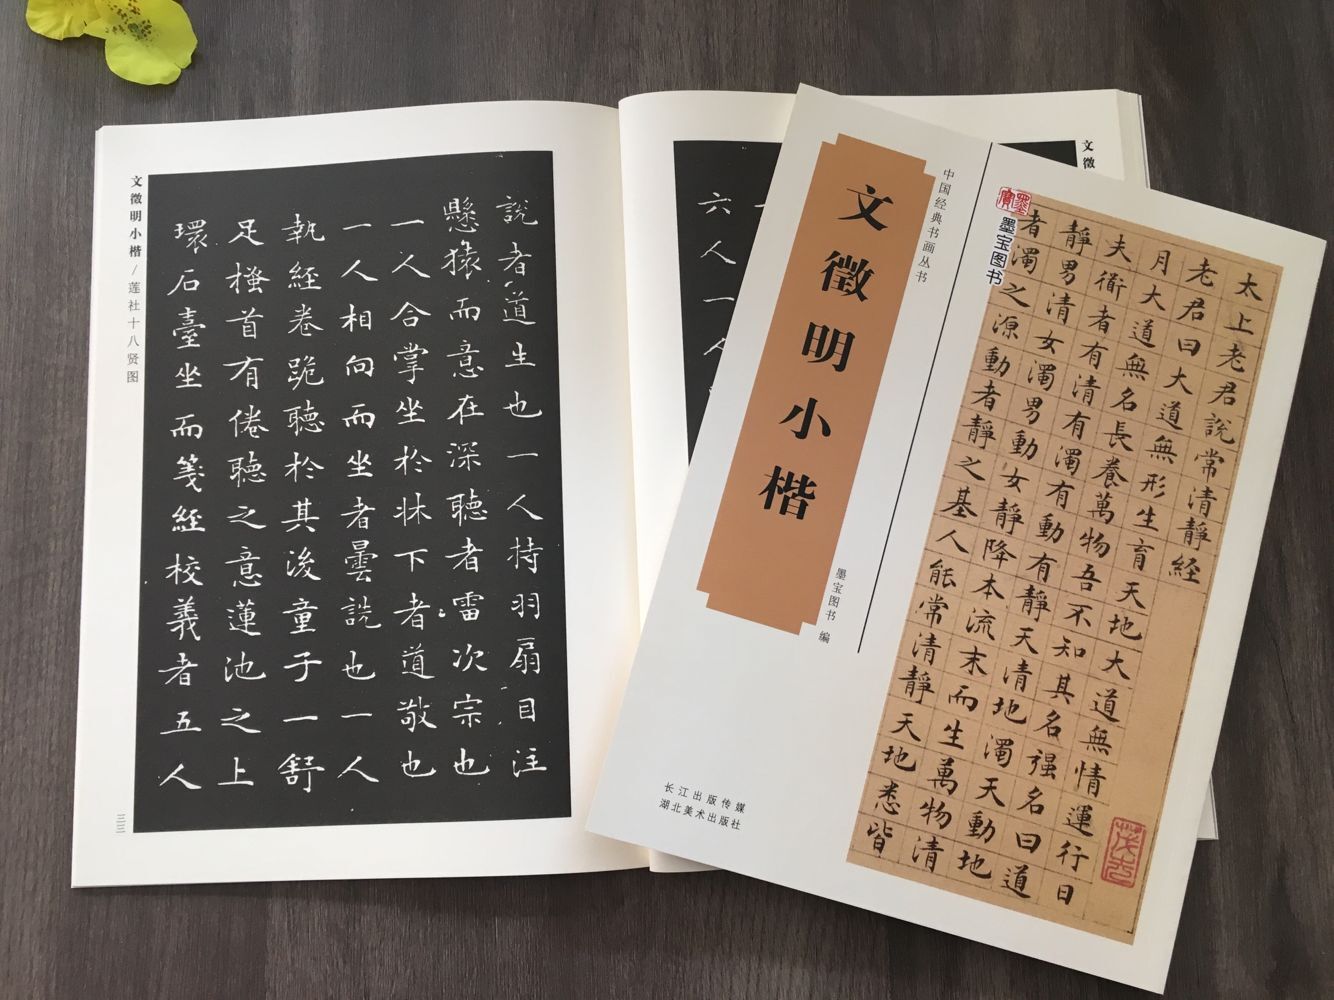 文徵明小楷/莲社十八贤图
説者道生也一人持羽扇目注
懸猿而意在深聽者雷次宗也
一人合掌坐於牀下者道敬也
一人相向而坐者曇詵也一人
執經卷跪聽於其後童子一舒
足搔首有倦聽之意蓮池之上
環石臺坐而箋經校義者五人
三三
文徵
六人一人
中国经典书画丛书
文徵明小楷
墨宝图书 编
长江出版传媒
湖北美术出版社
墨宝图书
太上老君説常清靜經
老君曰大道無形生育天地大道無情運行日
月大道無名長養萬物吾不知其名强名曰道
夫衜者有清有濁有動有靜天清地濁天動地
靜男清女濁男動女靜降本流末而生萬物清
者濁之源動者靜之基人能常清靜天地悉皆